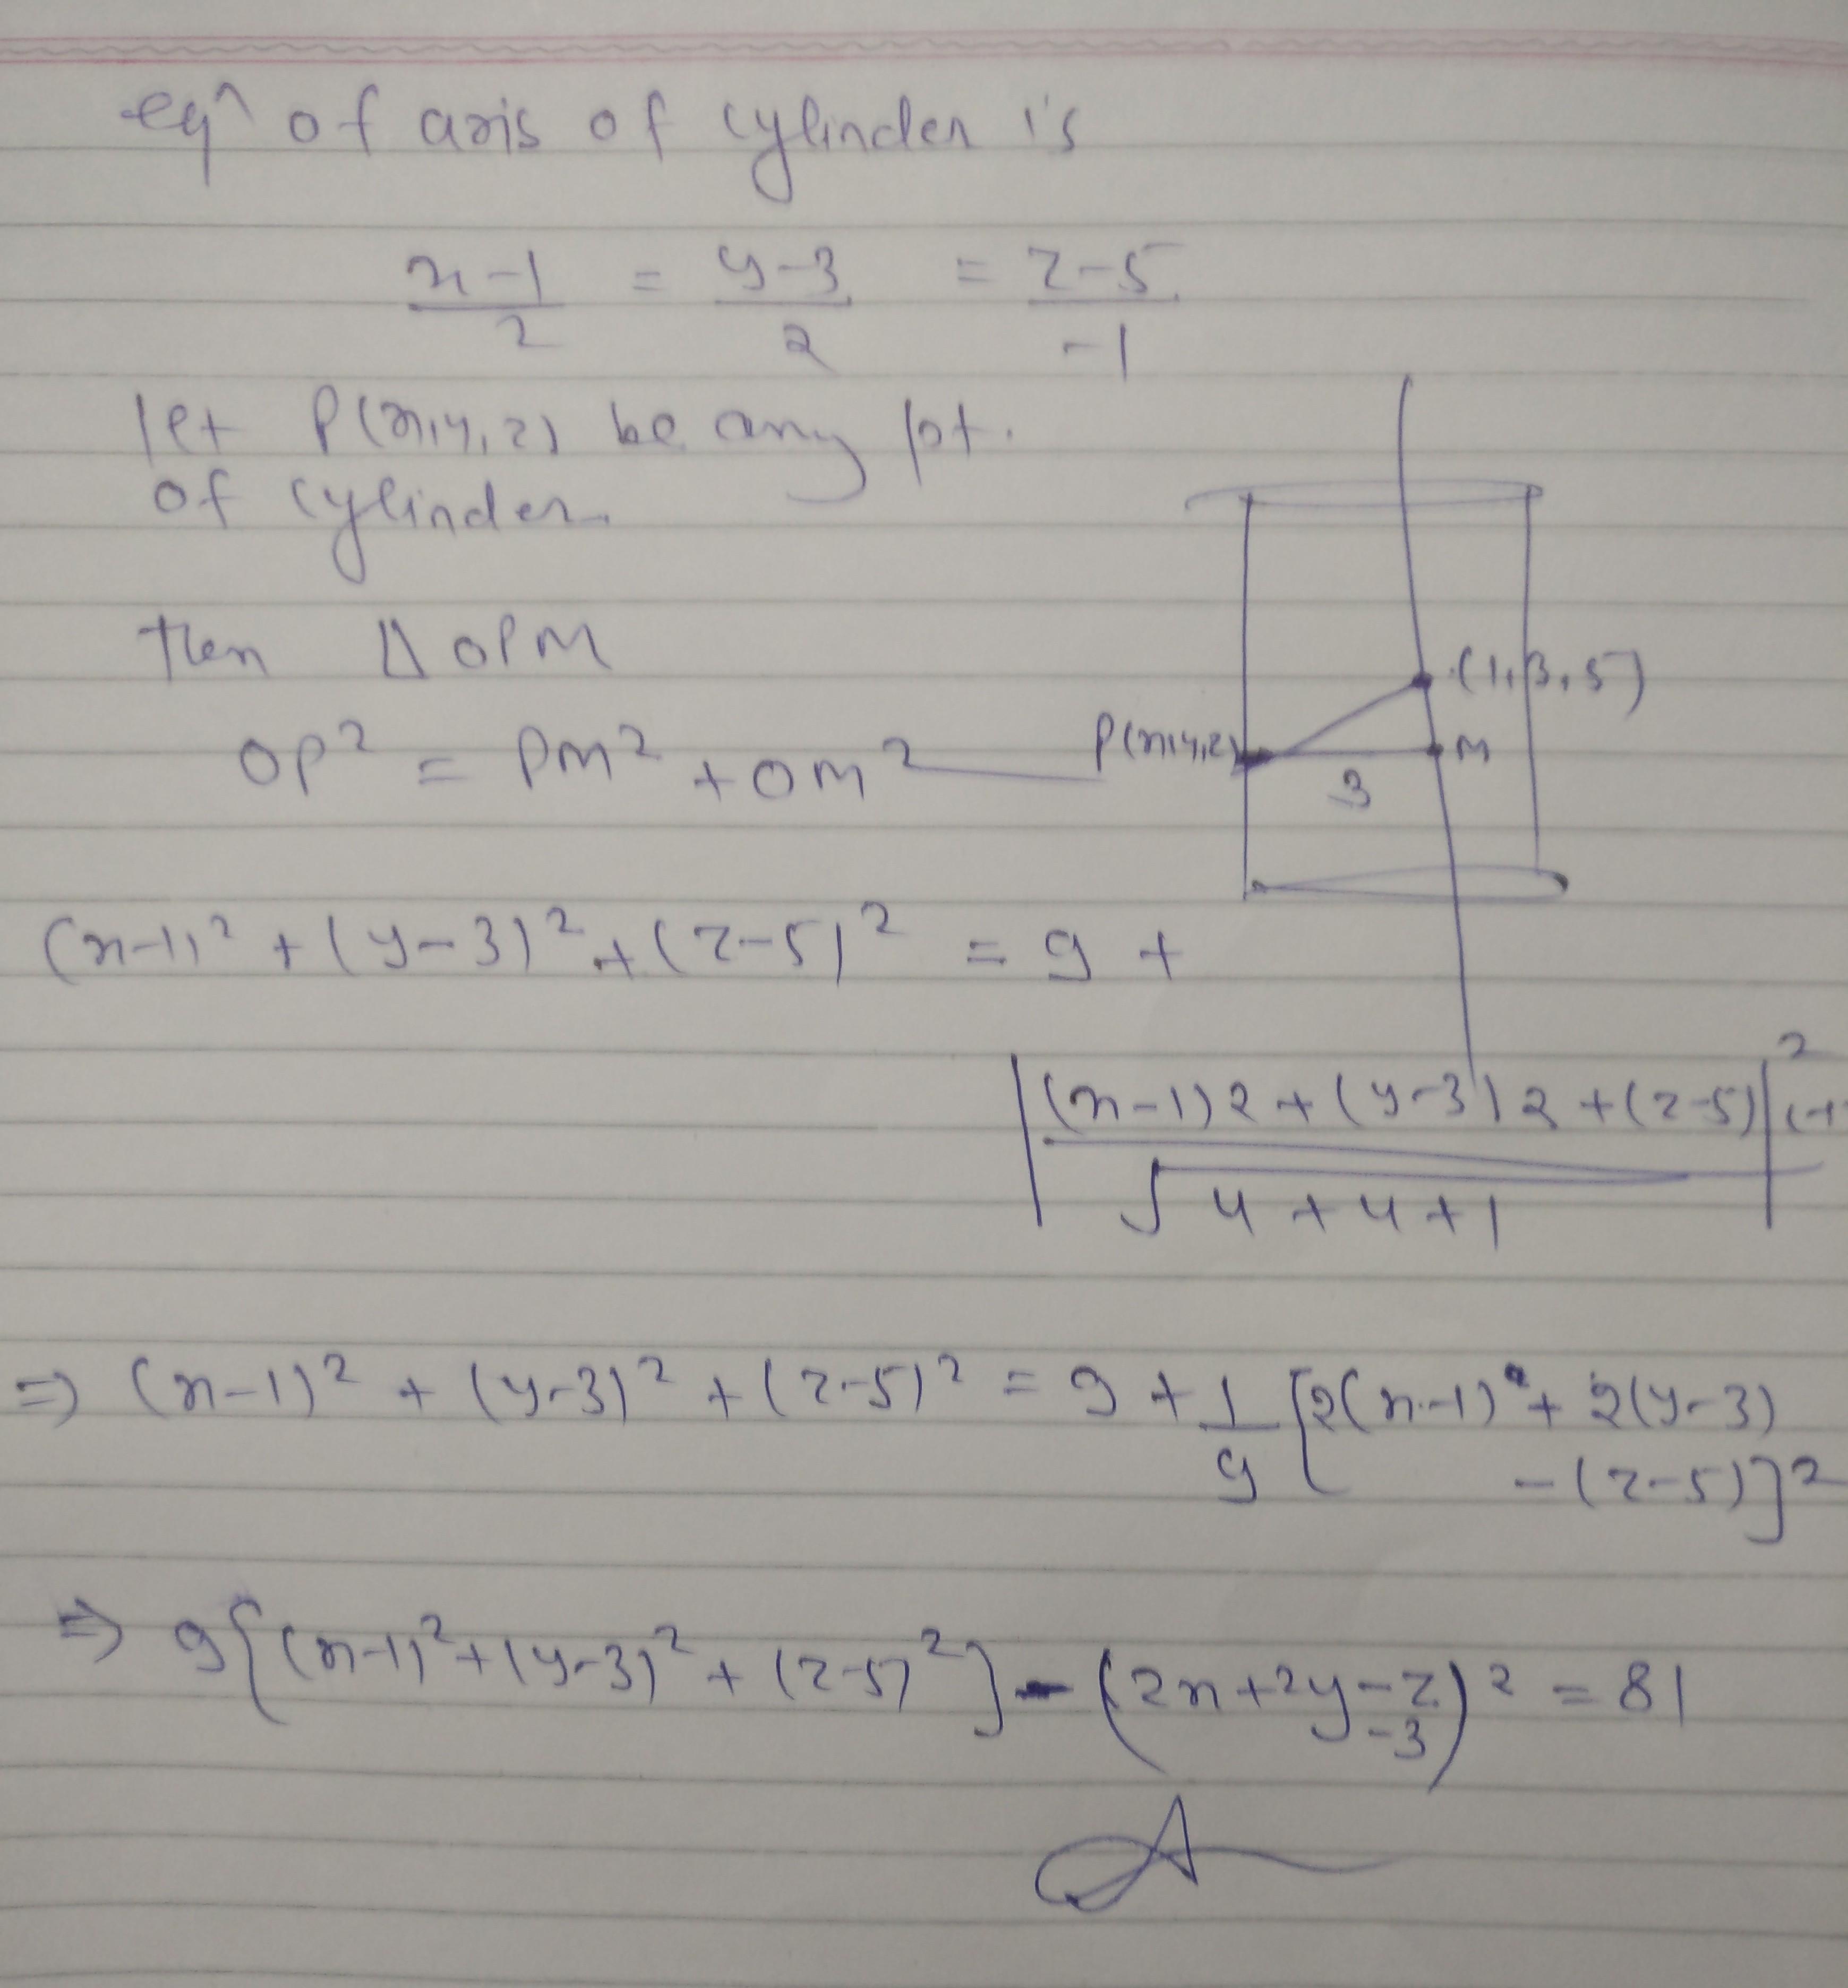 eqⁿ of axis of cylinder is
x-1/2 = y-3/2 = z-5/-1
let P(x,y,z) be any pt.
of cylinder.
then Δ OPM
OP² = PM² + OM²
(1,3,5)
P(x,y,z)
M
3
(x-1)² + (y-3)² + (z-5)² = 9 +
|(x-1)2 + (y-3)2 + (z-5)(-1)/√4+4+1|²
⇒ (x-1)² + (y-3)² + (z-5)² = 9 + 1/9 [2(x-1) + 2(y-3)
- (z-5)]²
⇒ 9{(x-1)² + (y-3)² + (z-5)²} - (2x+2y-z-3)² = 81